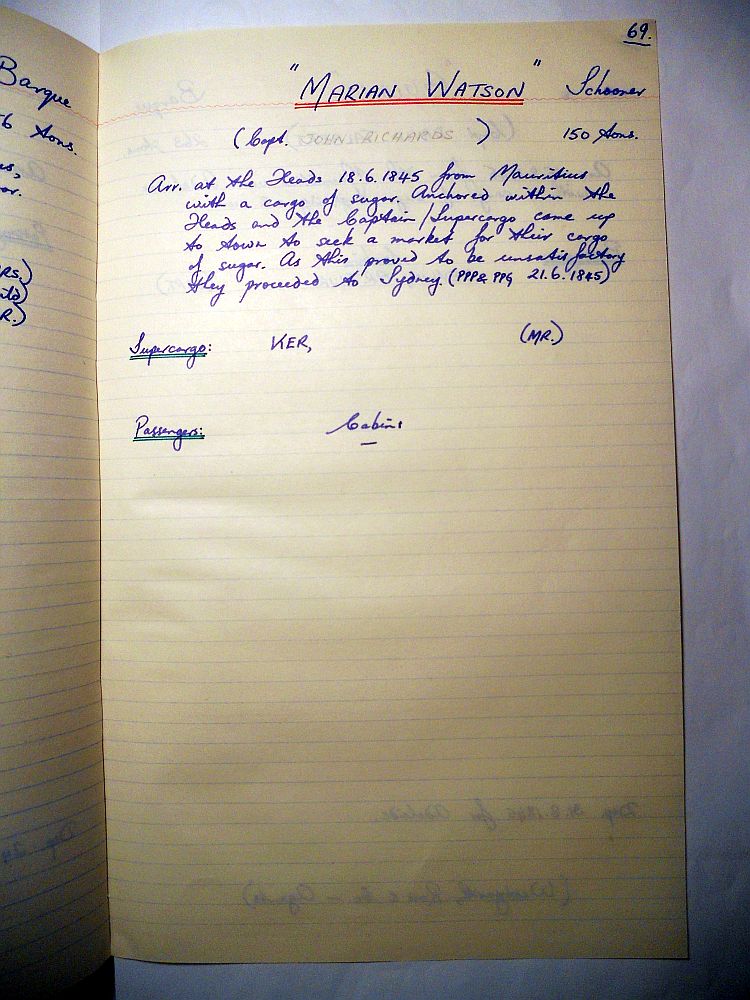 Barque
6 tons.
RS.)
R.)
69.
"MARIAN WATSON" Schooner
(Capt. JOHN RICHARDS) 150 tons.
Arr. at the Heads 18.6.1845 from Mauritius
with a cargo of sugar. Anchored within the
Heads and the Captain/Supercargo came up
to town to seek a market for their cargo
of sugar. As this proved to be unsatisfactory
they proceeded to Sydney. (PPP& PPG 21.6.1845)
Supercargo: KER, (MR.)
Passengers: Cabin:
—